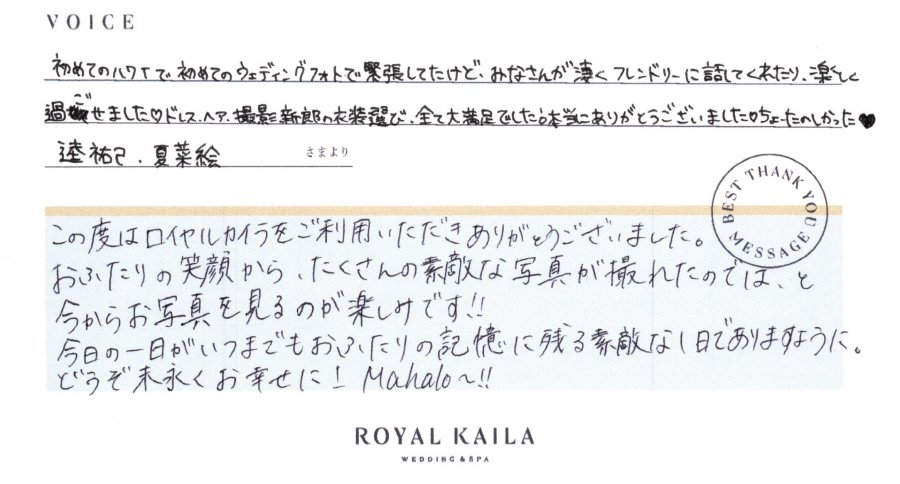 VOICE
初めてのハワイで初めてのウェディングフォトで緊張してたけど、みなさんが凄くフレンドリーに話してくれたり、楽しく
過ごせました♡ドレス、ヘア、撮影、新郎の衣装選び、全て大満足でした!本当にありがとうございました♡ちょーたのしかった♥
逵祐己、夏菜絵 さまより
BEST THANK YOU MESSAGE
この度はロイヤルカイラをご利用いただきありがとうございました。
おふたりの笑顔から、たくさんの素敵な写真が撮れたのでは、と
今からお写真を見るのが楽しみです!!
今日の一日がいつまでもおふたりの記憶に残る素敵な1日でありますように。
どうぞ末永くお幸せに! Mahalo~!!
ROYAL KAILA
WEDDING & SPA